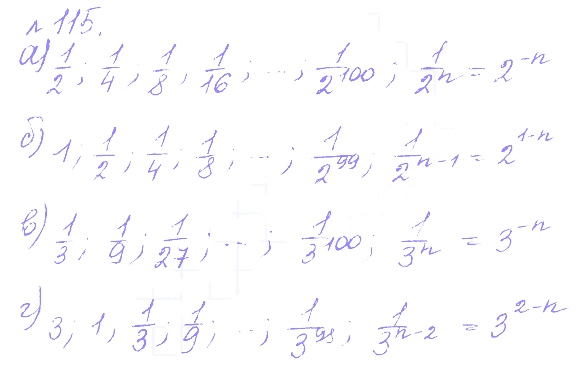 № 115.
а) 1/2; 1/4; 1/8; 1/16; ...; 1/2^100; 1/2^n = 2^-n
б) 1; 1/2; 1/4; 1/8; ...; 1/2^99; 1/2^n-1 = 2^1-n
в) 1/3; 1/9; 1/27; ...; 1/3^100; 1/3^n = 3^-n
г) 3; 1, 1/3; 1/9; ...; 1/3^98; 1/3^n-2 = 3^2-n